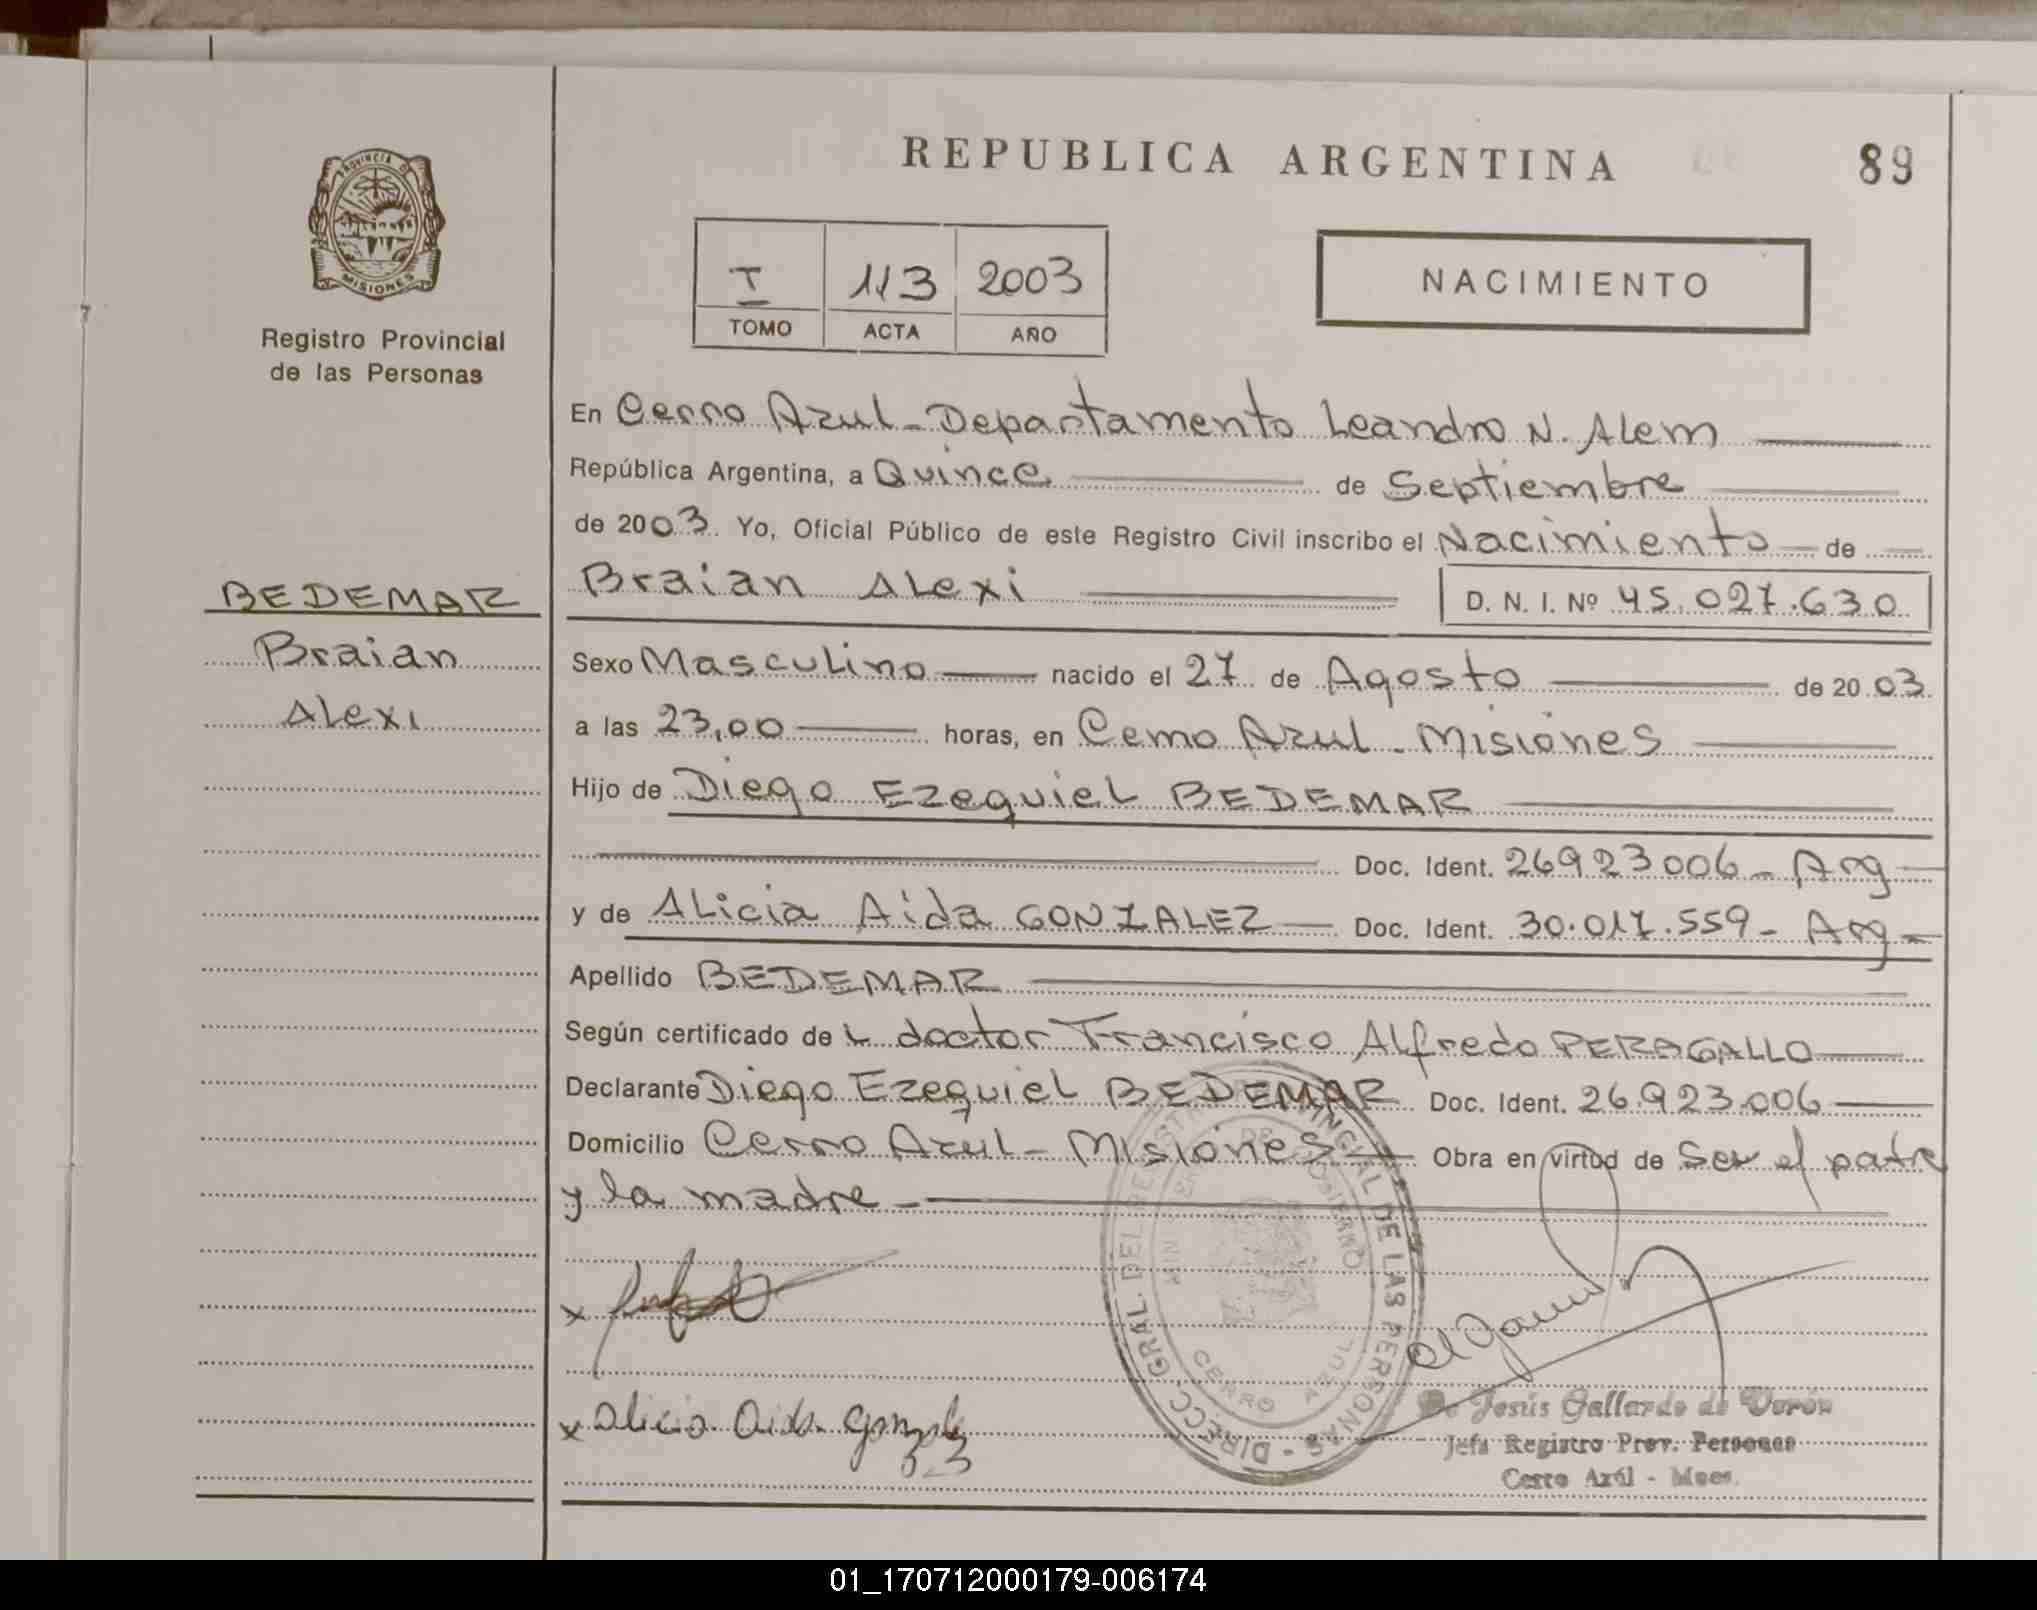 REPUBLICA ARGENTINA
89
PROVINCIA DE MISIONES
Registro Provincial
de las Personas
I 113 2003
TOMO ACTA AÑO
NACIMIENTO
BEDEMAR
Braian
Alexi
En Cerro Azul - Departamento Leandro N. Alem
República Argentina, a Quince de Septiembre
de 2003. Yo, Oficial Público de este Registro Civil inscribo el Nacimiento de
Braian Alexi D. N. I. Nº 45.027.630
Sexo Masculino nacido el 27 de Agosto de 2003
a las 23,00 horas, en Cerro Azul - Misiones
Hijo de Diego Ezequiel BEDEMAR
Doc. Ident. 26923006 - Arg
y de Alicia Aida GONZALEZ Doc. Ident. 30.017.559 - Arg
Apellido BEDEMAR
Según certificado de L doctor Francisco Alfredo PERAGALLO
Declarante Diego Ezequiel BEDEMAR Doc. Ident. 26.923.006
Domicilio Cerro Azul - Misiones Obra en virtud de Ser el padre
y la madre -
x
x Alicia Aida Gonzalez
DIRECC. GRAL. DEL REGISTRO PROVINCIAL DE LAS PERSONAS
CERRO AZUL
Jesús Gallardo de
Jefa Registro Prov. Personas
Cerro Azúl - Mnes.
01_170712000179-006174